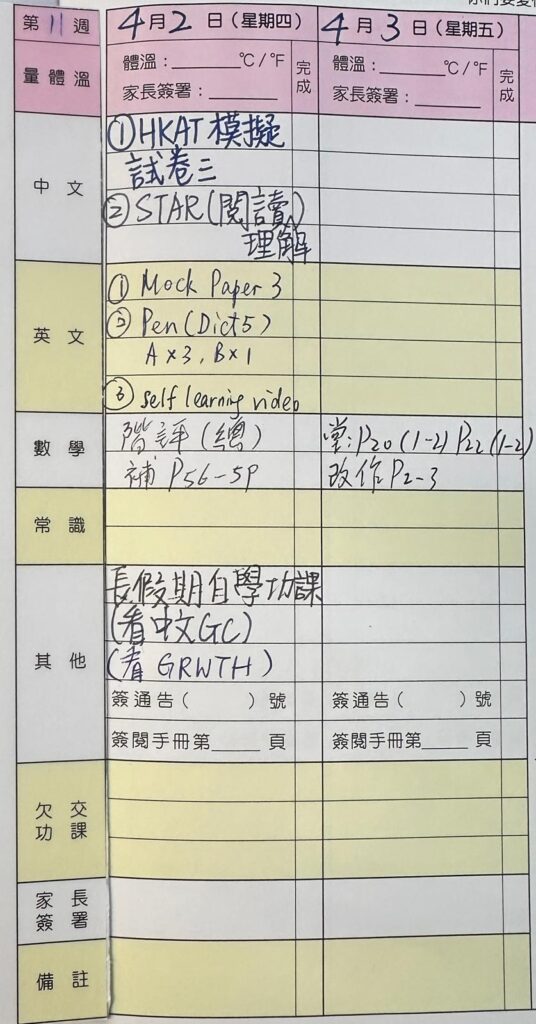 第11週
4月2日(星期四)
4月3日(星期五)
量體溫
體溫：______℃/℉
家長簽署：______
完成
體溫：______℃/℉
家長簽署：______
完成
中文
①HKAT模擬
試卷三
②STAR(閱讀
理解)
英文
① Mock Paper 3
② Pen(Dict5)
A×3, B×1
③ self learning video
數學
階評(總)
補 P56-59
堂:P20(1-2) P22(1-2)
改作 P2-3
常識
其他
長假期自學功課
(看中文GC)
(看 GRWTH)
簽通告(　　)號
簽閱手冊第____頁
簽通告(　　)號
簽閱手冊第____頁
欠交
功課
家長
簽署
備註